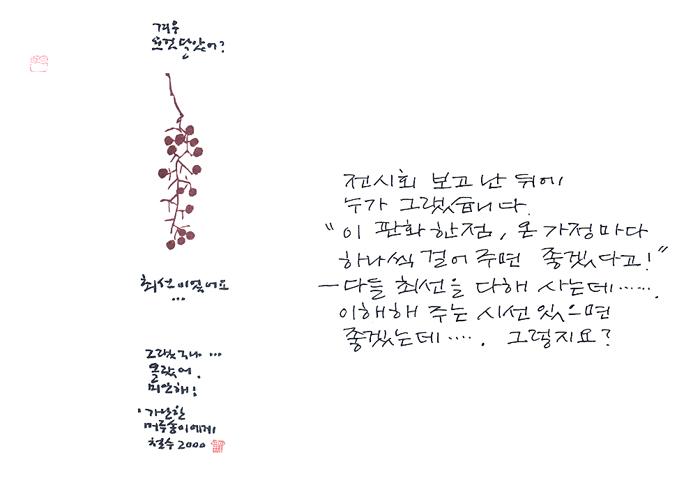 겨우
요것 달았어?
최선이었어요
...
그랬구나 ...
몰랐어.
미안해!
'가난한
머루송이에게
철수 2000
전시회 보고 난 뒤에
누가 그랬습니다.
"이 판화 한점, 온 가정마다
하나씩 걸어 주면 좋겠다고!"
—다들 최선을 다해 사는데......
이해해 주는 시선 있으면
좋겠는데..... 그렇지요?